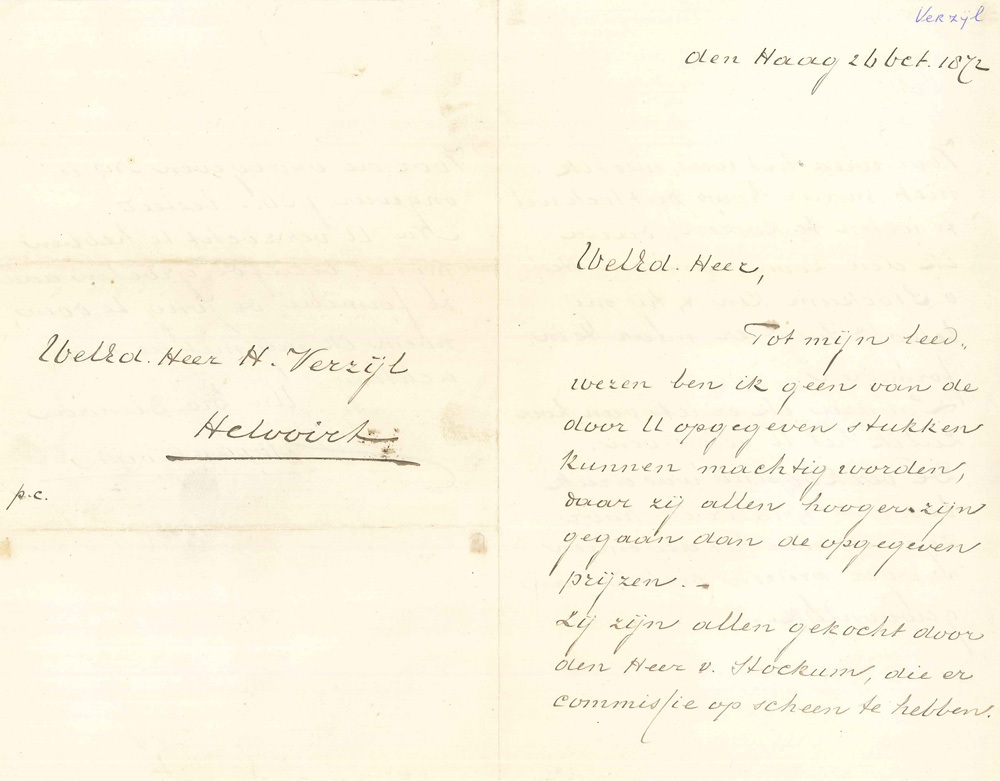 Verzijl
den Haag 26 Oct. 1872
WelEd. Heer,
Tot mijn leed„
wezen ben ik geen van de
door U opgegeven stukken
kunnen machtig worden,
daar zij allen hooger zijn
gegaan dan de opgegeven
prijzen. –
Zij zijn allen gekocht door
den Heer v. Stockum, die er
commissie op scheen te hebben.
WelEd. Heer H. Verzijl
Helvoirt
p.c.